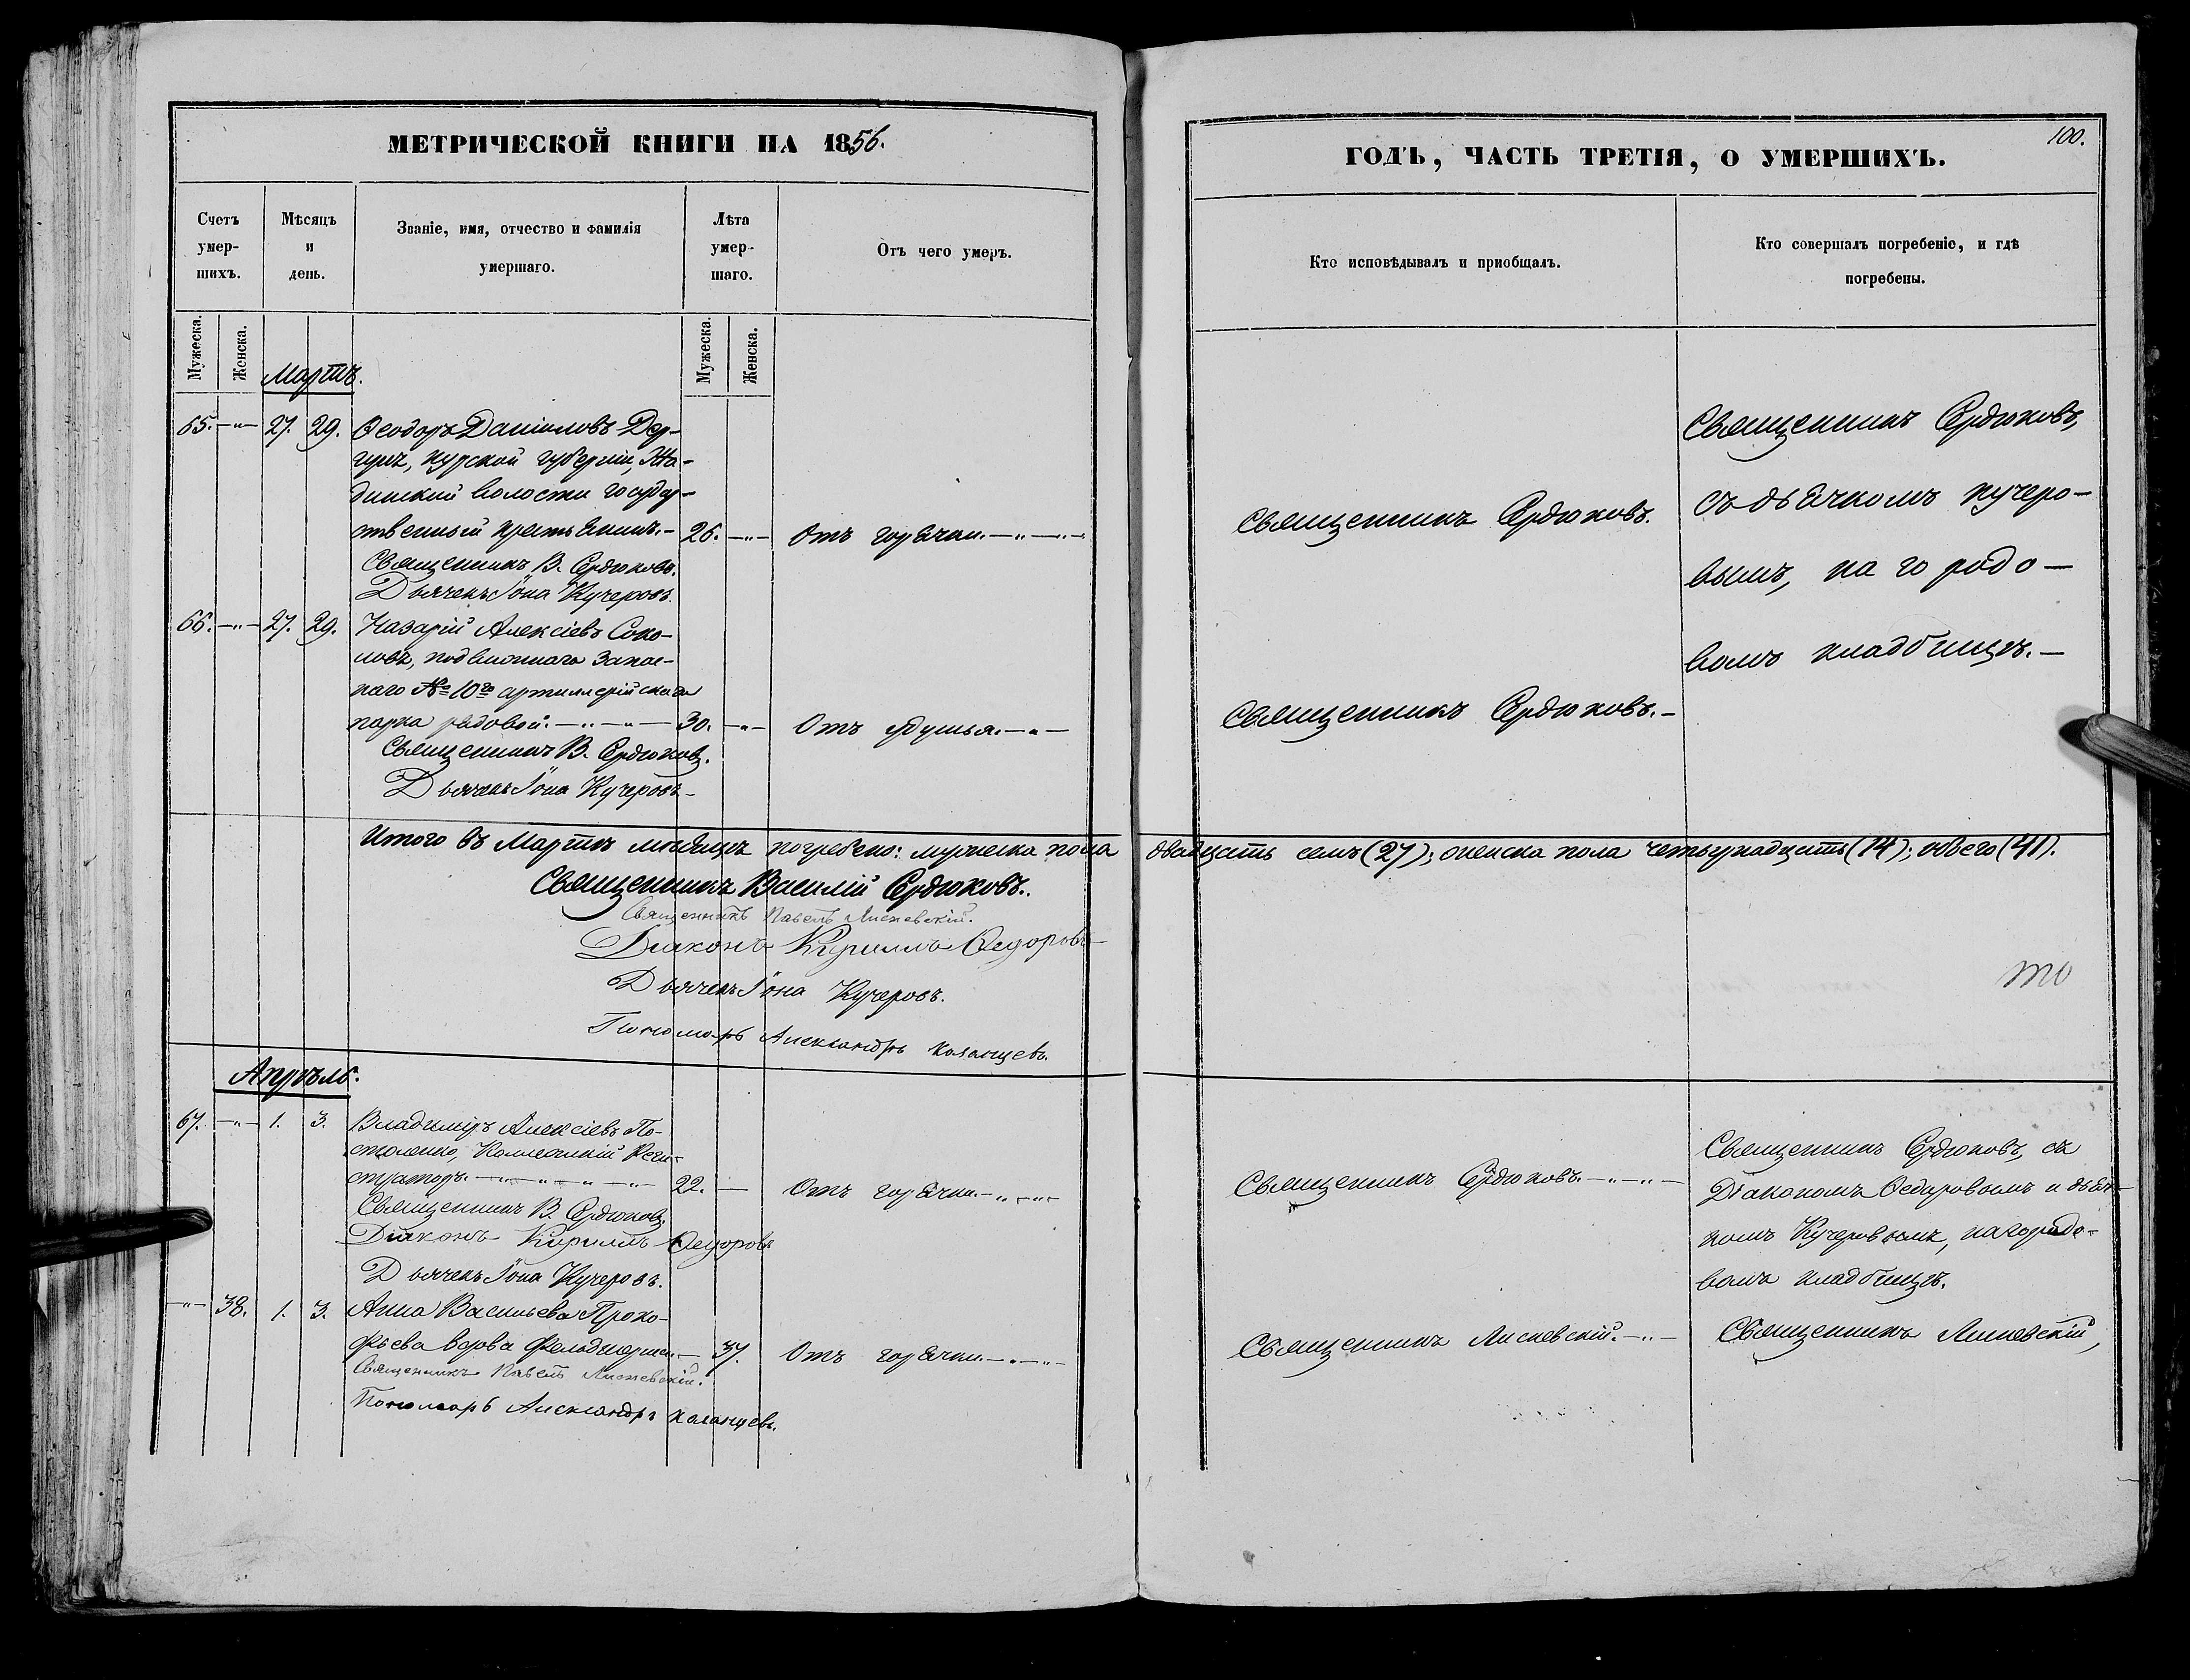 МЕТРИЧЕСКОЙ КНИГИ НА 1856.
Счетъ умер-шихъ.
Мѣсяцъ и день.
Званіе, имя, отчество и фамилія умершаго.
Лѣта умер-шаго.
Отъ чего умеръ.
Мужеска.
Женска.
Мужеска.
Женска.
Мартъ.
65. —"— 27. 29. Ѳеодоръ Даніиловъ Дер-
гунъ, Курской губерніи,
волости государ-
ственный крестьянинъ.— 26. —"— Отъ горячки.—"—"—
Священникъ В. Сердюковъ.
Дьячекъ Іона Кучеровъ.
66. —"— 27. 29. Назарій Алексіевъ Соко-
ловъ, подвижнаго запас-
наго № 10го артиллерійскаго
парка рядовой.—"—"— 30. —"— Отъ удушья.—"—
Священникъ В. Сердюковъ.
Дьячекъ Іона Кучеровъ.
Итого въ Мартѣ мѣсяцѣ погребено: мужеска пола
Священникъ Василій Сердюковъ.
Священникъ Павелъ Лисневскій.
Діаконъ Кириллъ Ѳедоровъ
Дьячекъ Іона Кучеровъ.
Пономарь Александръ Казанцевъ.
Апрѣль.
67. —"— 1. 3. Владиміръ Алексіевъ По-
столенко, Коллежскій Реги-
страторъ.—"—"—"— 22. — Отъ горячки.—"—"—
Священникъ В. Сердюковъ.
Діаконъ Кириллъ Ѳедоровъ
Дьячекъ Іона Кучеровъ.
—"— 38. 1. 3. Анна Васильева Проко-
фьева вдова фельдшера.— 37. Отъ горячки.—"—"—
Священникъ Павелъ Лисневскій.
Пономарь Александръ Казанцевъ.
100.
ГОДЪ, ЧАСТЬ ТРЕТІЯ, О УМЕРШИХЪ.
Кто исповѣдывалъ и пріобщалъ.
Кто совершалъ погребеніе, и гдѣ погребены.
Священникъ Сердюковъ,
съ дьячкомъ Кучеро-
Священникъ Сердюковъ.
вымъ, на городо—
вомъ кладбищѣ.—
Священникъ Сердюковъ.—
двадцать семь (27); женска пола четырнадцать (14); обоего (41).
то
Священникъ Сердюковъ, съ
Священникъ Сердюковъ.—"—"—
Діакономъ Ѳедоровымъ и дьяч-
комъ Кучеровымъ, на городо-
вомъ кладбищѣ.
Священникъ Лисневскій.—"— Священникъ Лисневскій,